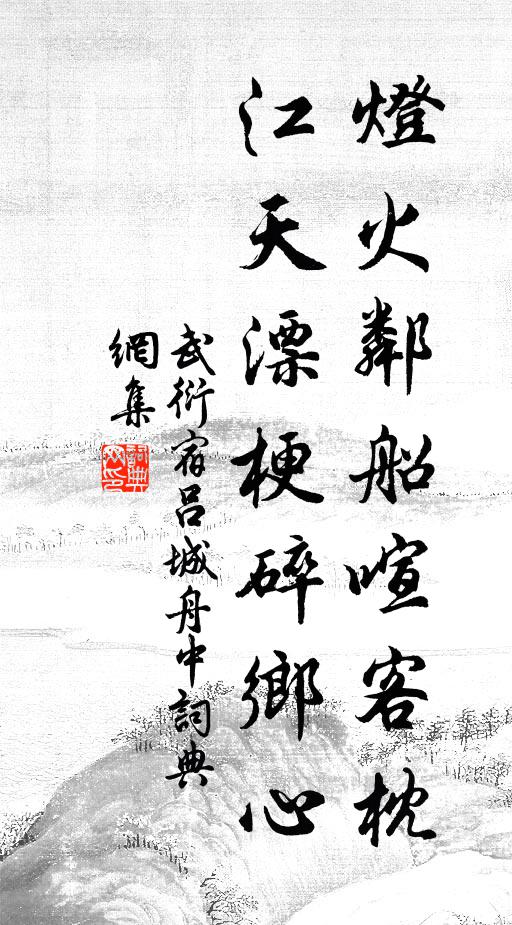 燈火鄰船喧客枕
江天漂梗碎鄉心
武衍宿吕城舟中詞典
網集
詞典
网印